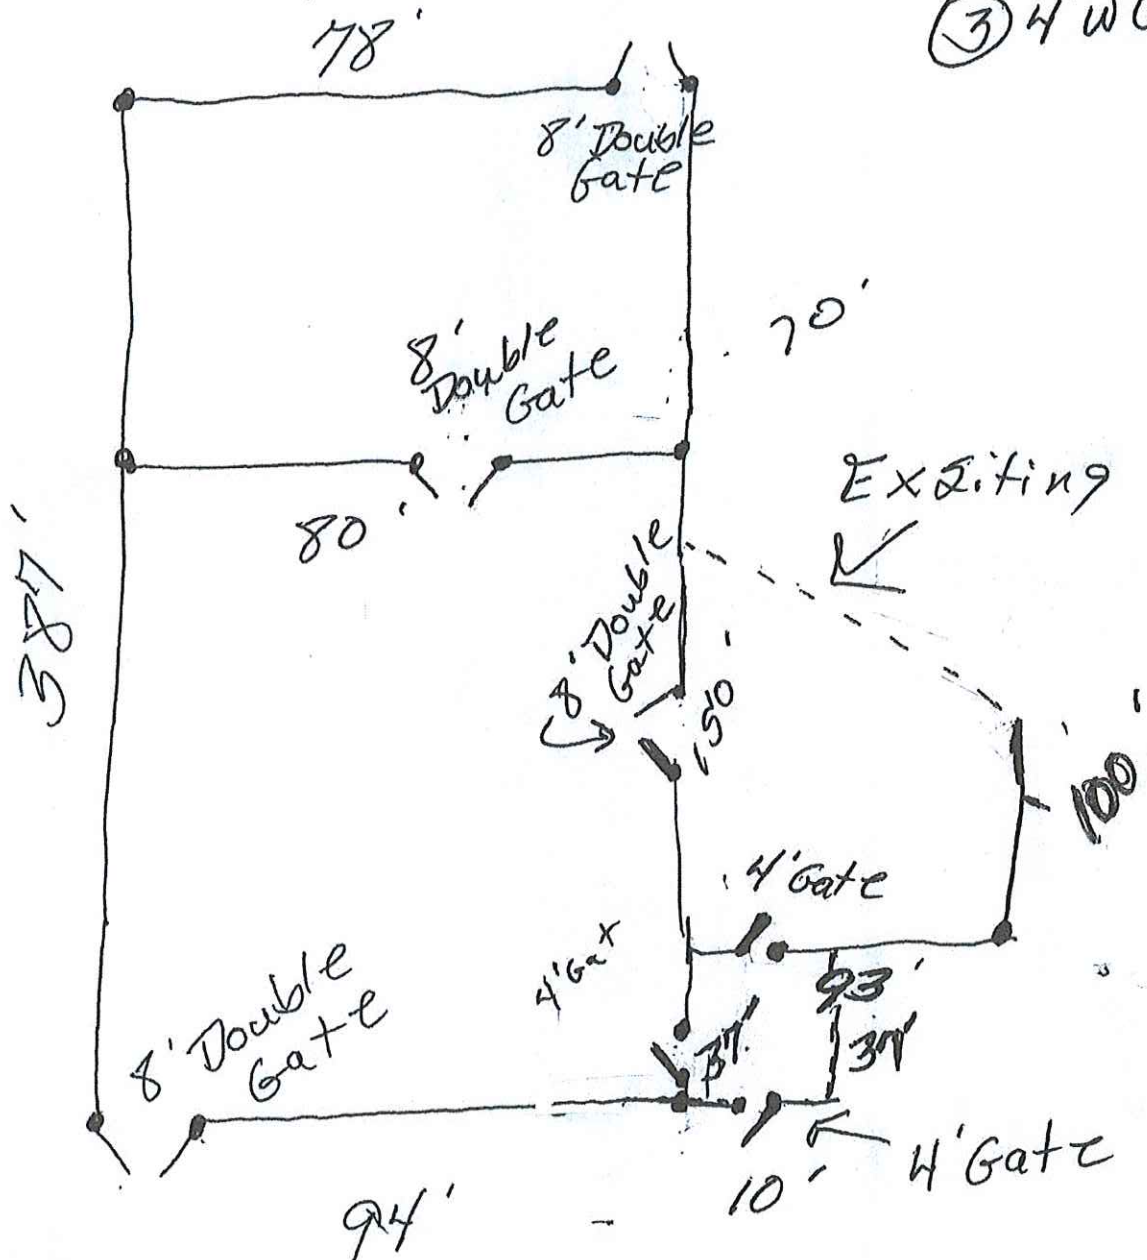 78'
③ 4 W
8' Double
Gate
70'
8'
Double
Gate
80'
Exsiting
387'
8' Double
Gate
150'
100'
4' Gate
4' Ga
93'
37'
37'
8' Double
Gate
4' Gate
10'
94'